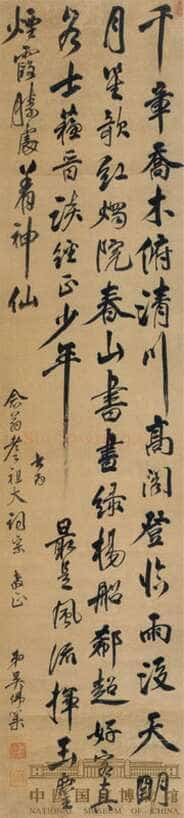 千章喬木俯清川高閣登臨雨後天明
月笙歌紅燭院春山書畫綠楊船郗超好客真
名士蘇晉談經正少年最是風流揮玉麈
煙霞勝處着神仙
書為
翁老祖大詞宗 正
弟吳偉業
中国国家博物馆
NATIONAL MUSEUM OF CHINA